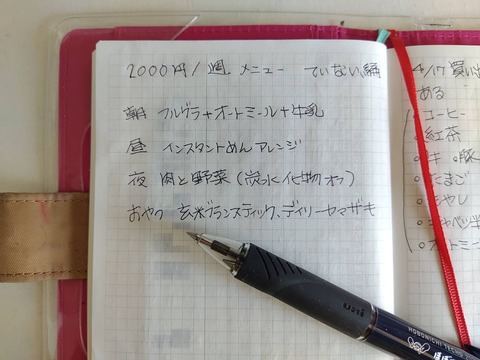 2000円/週 メニュー ていない編
朝 フルグラ+オートミール+牛乳
昼 インスタントめんアレンジ
夜 肉と野菜(炭水化物オフ)
おやつ 玄米ブランスティック、デイリーヤマザキ
4/17 買い
ある
コーヒー
紅茶
たまご
モヤシ
キャベツ半
オートミー
uni
HOBONICHI TECHO